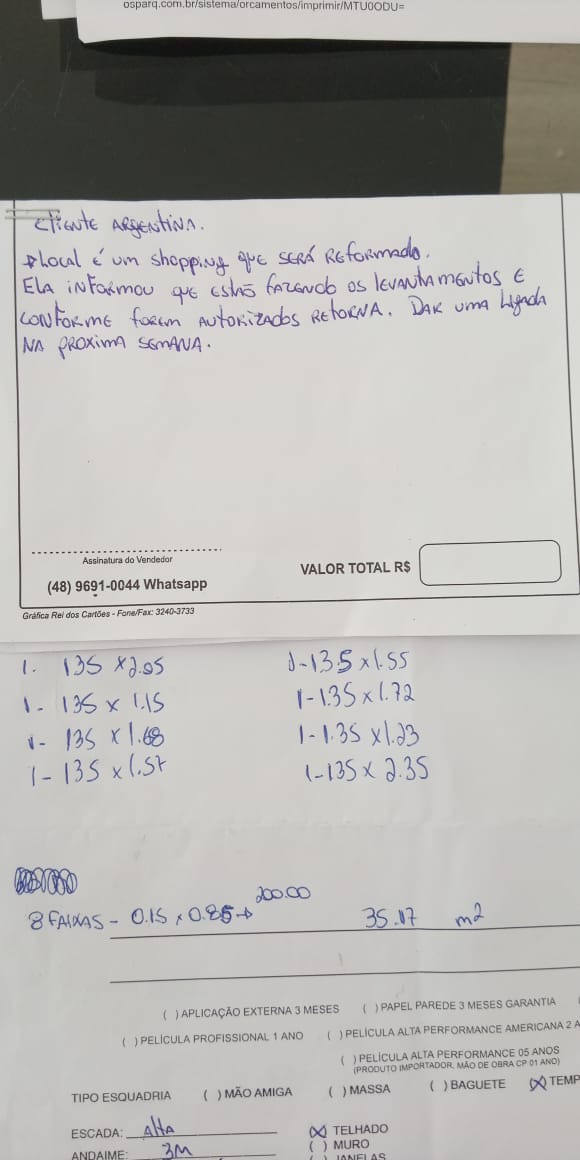 osparq.com.br/sistema/orcamentos/imprimir/MTU0ODU=
cliente ARGENTINA.
local é um shopping que SERÁ REformado.
ElA iNFORMOU que estão fazendo os levantamentos E
CONFORME forem AUTORIZADOS RETORNA. DAR uma Ligada
NA PROXIMA SEMANA.
Assinatura do Vendedor
VALOR TOTAL R$
(48) 9691-0044 Whatsapp
Gráfica Rei dos Cartões - Fone/Fax: 3240-3733
1. 135 x 2.05
1-13.5 x 1.55
1- 135 x 1.15
1-1.35 x 1.72
1- 135 x 1.68
1-1.35 x 1.23
1- 135 x 1.57
1-135 x 2.35
200.00
8 FAIXAS - 0.15 x 0.85 → 35.17 m2
( ) APLICAÇÃO EXTERNA 3 MESES ( ) PAPEL PAREDE 3 MESES GARANTIA (
( ) PELÍCULA PROFISSIONAL 1 ANO ( ) PELÍCULA ALTA PERFORMANCE AMERICANA 2 A
( ) PELÍCULA ALTA PERFORMANCE 05 ANOS
(PRODUTO IMPORTADOR, MÃO DE OBRA CP 01 ANO)
TIPO ESQUADRIA ( ) MÃO AMIGA ( ) MASSA ( ) BAGUETE (X) TEMP
ESCADA: Alta (X) TELHADO
( ) MURO
ANDAIME: 3M ( ) JANELAS